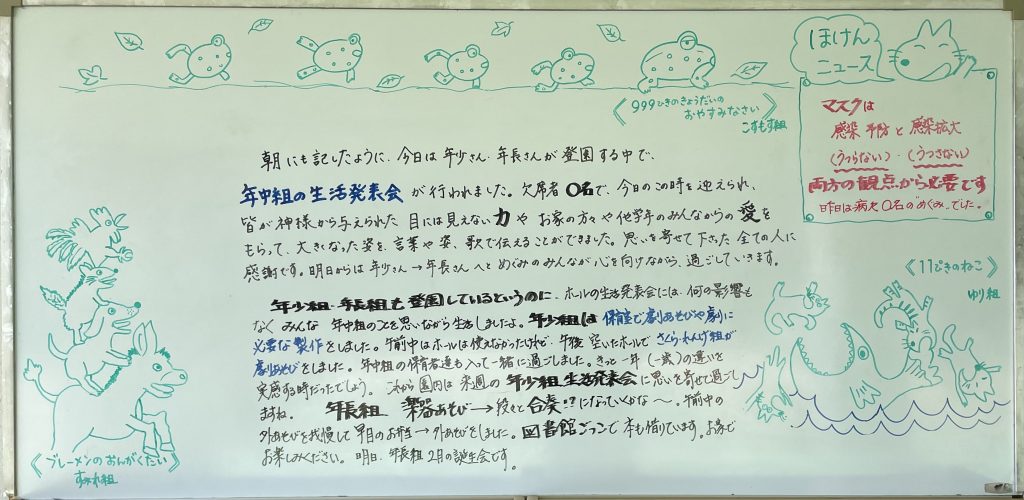 ほけん
ニュース
999ひきのきょうだいの
おやすみなさい
こすもす組
マスクは
感染予防と感染拡大
(うつらない)・(うつさない)
両方の観点から必要です
昨日は病欠0名の"めぐみ"でした。
朝にも記したように、今日は年少さん・年長さんが登園する中で、
年中組の生活発表会が行われました。欠席者0名で、今日のこの時を迎えられ、
皆が神様から与えられた目には見えない力やお家の方々や他学年のみんなからの愛を
もらって、大きくなった姿を、言葉や姿、歌で伝えることができました。思いを寄せて下さった全ての人に
感謝です。明日からは年少さん→年長さんへとめぐみのみんなが心を向けながら、過ごしていきます。
年少組・年長組も登園しているというのに、ホールの生活発表会には、何の影響も
なくみんな年中組のことを思いながら生活しましたよ。年少組は保育室で劇あそびや劇に
必要な製作をしました。午前中はホールは使えなかったけれど、午後空いたホールでさくら・れんげ組が
劇あそびをしました。年中組の保育者達も入って一緒に過ごしました。きっと一年(一歳)の違いを
実感する時だったでしょう。これから園内は来週の年少組生活発表会に思いを寄せて過ごし
ますね。 年長組 楽器あそび→段々と合奏!?になっていくかな〜。午前中の
外あそびを我慢して早目のお弁当→外あそびをしました。図書館ごっこで本も借りています。お家で
お楽しみください。明日、年長組2月の誕生会です。
11ぴきのねこ
ゆり組
ブレーメンのおんがくたい
すみれ組